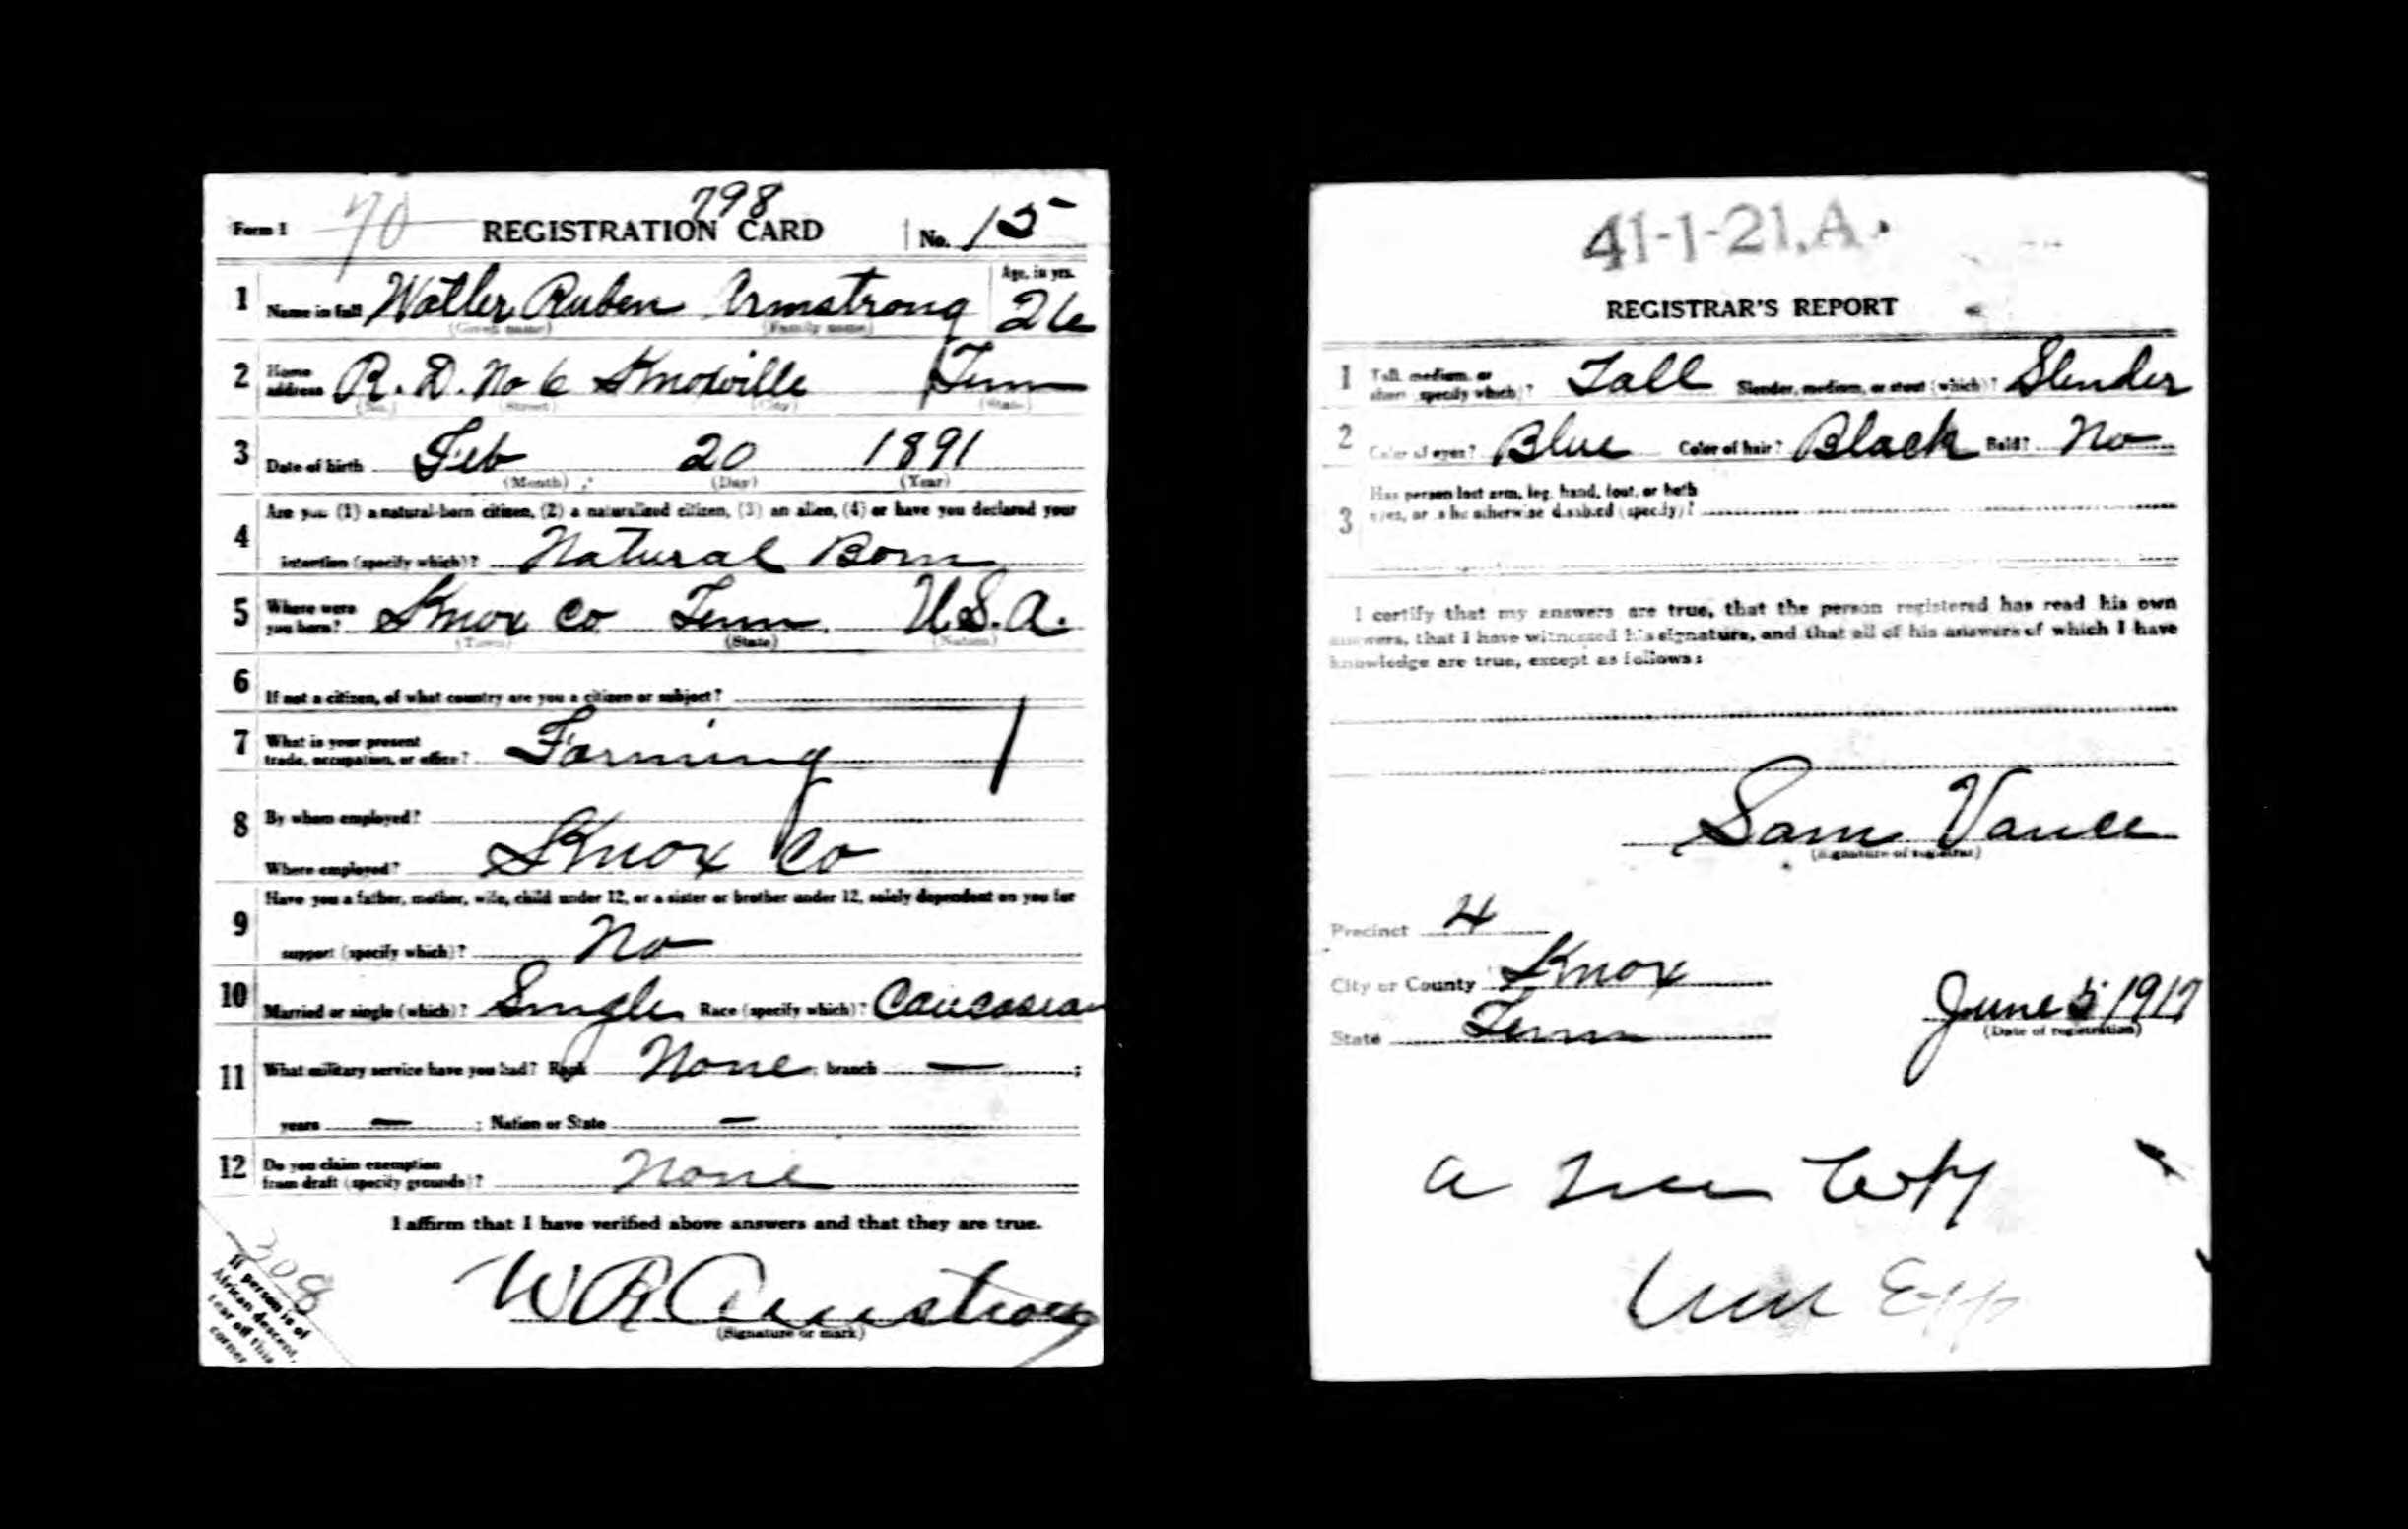 798
Form 1 70 REGISTRATION CARD No. 15
1 Name in full Watler Ruben Armstrong Age, in yrs. 26
(Given name) (Family name)
2 Home address R. D. No 6 Knoxville Tenn
(No.) (Street) (City) (State)
3 Date of birth Feb 20 1891
(Month) (Day) (Year)
4 Are you (1) a natural-born citizen, (2) a naturalized citizen, (3) an alien, (4) or have you declared your
intention (specify which)? Natural Born
5 Where were you born? Knox Co Tenn. U.S.A.
(Town) (State) (Nation)
6 If not a citizen, of what country are you a citizen or subject?
7 What is your present trade, occupation, or office? Farming
8 By whom employed?
Where employed? Knox Co
9 Have you a father, mother, wife, child under 12, or a sister or brother under 12, solely dependent on you for
support (specify which)? No
10 Married or single (which)? Single Race (specify which)? Caucasian
11 What military service have you had? Rank None; branch —;
years —; Nation or State —
12 Do you claim exemption from draft (specify grounds)? None
I affirm that I have verified above answers and that they are true.
W R Armstrong
(Signature or mark)
308
If person is of
African descent,
tear off this
corner
41-1-21.A.
REGISTRAR'S REPORT
1 Tall, medium, or short (specify which)? Tall Slender, medium, or stout (which)? Slender
2 Color of eyes? Blue Color of hair? Black Bald? No
3 Has person lost arm, leg, hand, foot, or both
eyes, or is he otherwise disabled (specify)?
I certify that my answers are true, that the person registered has read his own
answers, that I have witnessed his signature, and that all of his answers of which I have
knowledge are true, except as follows:
Sam Vance
(Signature of registrar)
Precinct 4
City or County Knox
State Tenn
June 5 1917
(Date of registration)
a True Copy